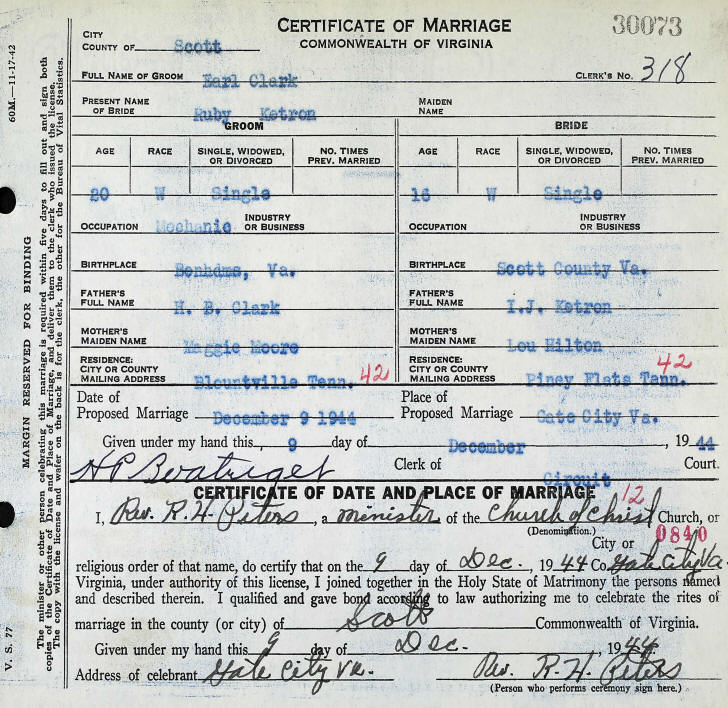 CERTIFICATE OF MARRIAGE
COMMONWEALTH OF VIRGINIA
30073
CITY
COUNTY OF Scott
FULL NAME OF GROOM Earl Clark
CLERK'S NO. 318
PRESENT NAME OF BRIDE Ruby Ketron
MAIDEN NAME
GROOM
BRIDE
AGE RACE SINGLE, WIDOWED, OR DIVORCED NO. TIMES PREV. MARRIED
AGE RACE SINGLE, WIDOWED, OR DIVORCED NO. TIMES PREV. MARRIED
20 W Single
16 W Single
OCCUPATION Mechanic INDUSTRY OR BUSINESS
OCCUPATION INDUSTRY OR BUSINESS
BIRTHPLACE Benhdms, Va.
BIRTHPLACE Scott County Va.
FATHER'S FULL NAME H. B. Clark
FATHER'S FULL NAME I.J. Ketron
MOTHER'S MAIDEN NAME Maggie Moore
MOTHER'S MAIDEN NAME Lou Hilton
RESIDENCE: CITY OR COUNTY MAILING ADDRESS Blountville Tenn. 42
RESIDENCE: CITY OR COUNTY MAILING ADDRESS Piney Flats Tenn. 42
Date of Proposed Marriage December 9 1944
Place of Proposed Marriage Gate City Va.
Given under my hand this 9 day of December, 1944
H P Boatright Clerk of Circuit Court.
CERTIFICATE OF DATE AND PLACE OF MARRIAGE 12
I, Rev. R. H. Peters, a minister of the Church of Christ Church, or
(Denomination.)
City or 0840
religious order of that name, do certify that on the 9 day of Dec., 1944 Co. Gate City Va.
Virginia, under authority of this license, I joined together in the Holy State of Matrimony the persons named
and described therein. I qualified and gave bond according to law authorizing me to celebrate the rites of
marriage in the county (or city) of Scott Commonwealth of Virginia.
Given under my hand this 9 day of Dec., 1944.
Address of celebrant Gate City Va. Rev. R. H. Peters
(Person who performs ceremony sign here.)
60M.—11-17-42
V. S. 77
MARGIN RESERVED FOR BINDING
The minister or other person celebrating this marriage is required within five days to fill out and sign both
copies of the Certificate of Date and Place of Marriage, and deliver them to the clerk who issued the license.
The copy with the license and wafer on the back is for the clerk, the other for the Bureau of Vital Statistics.